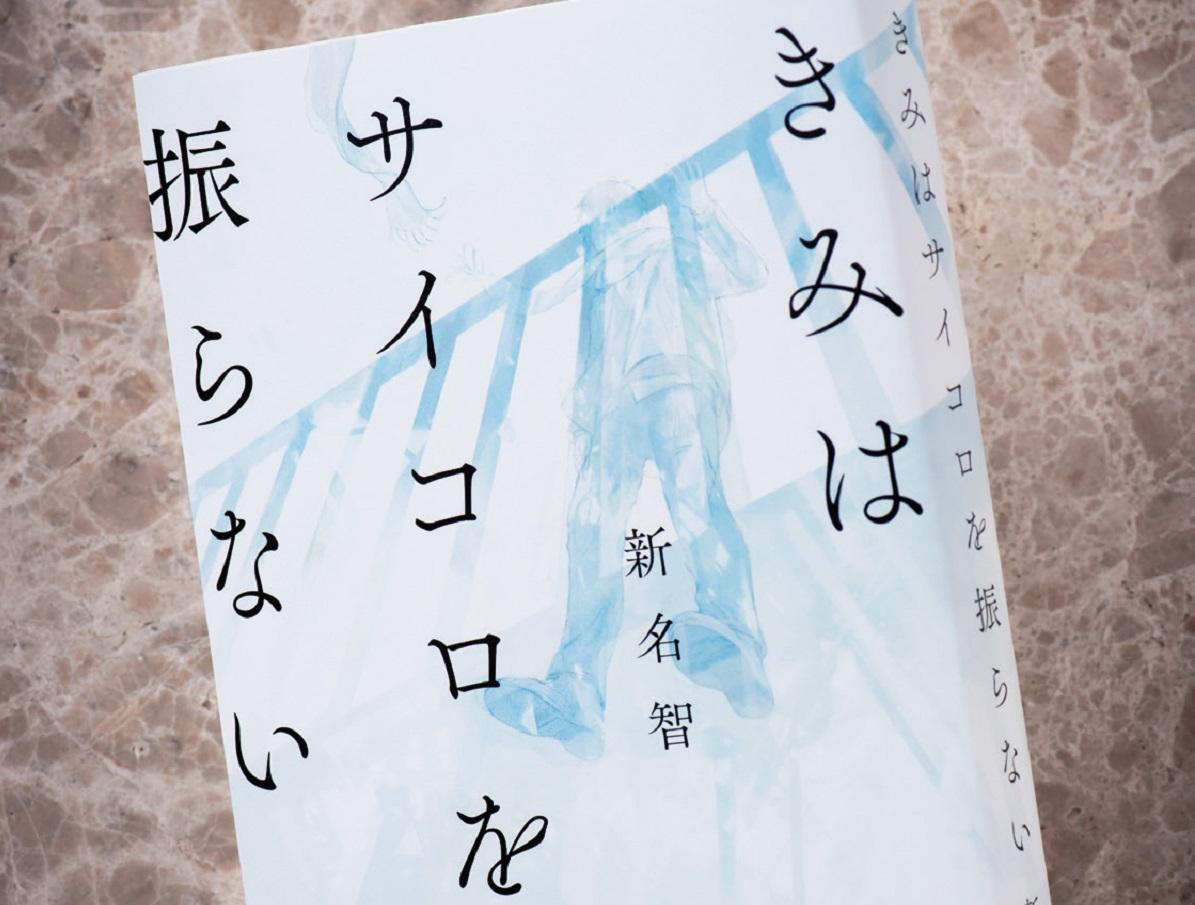 きみは
サイコロを
振らない
新名智
きみはサイコロを振らない